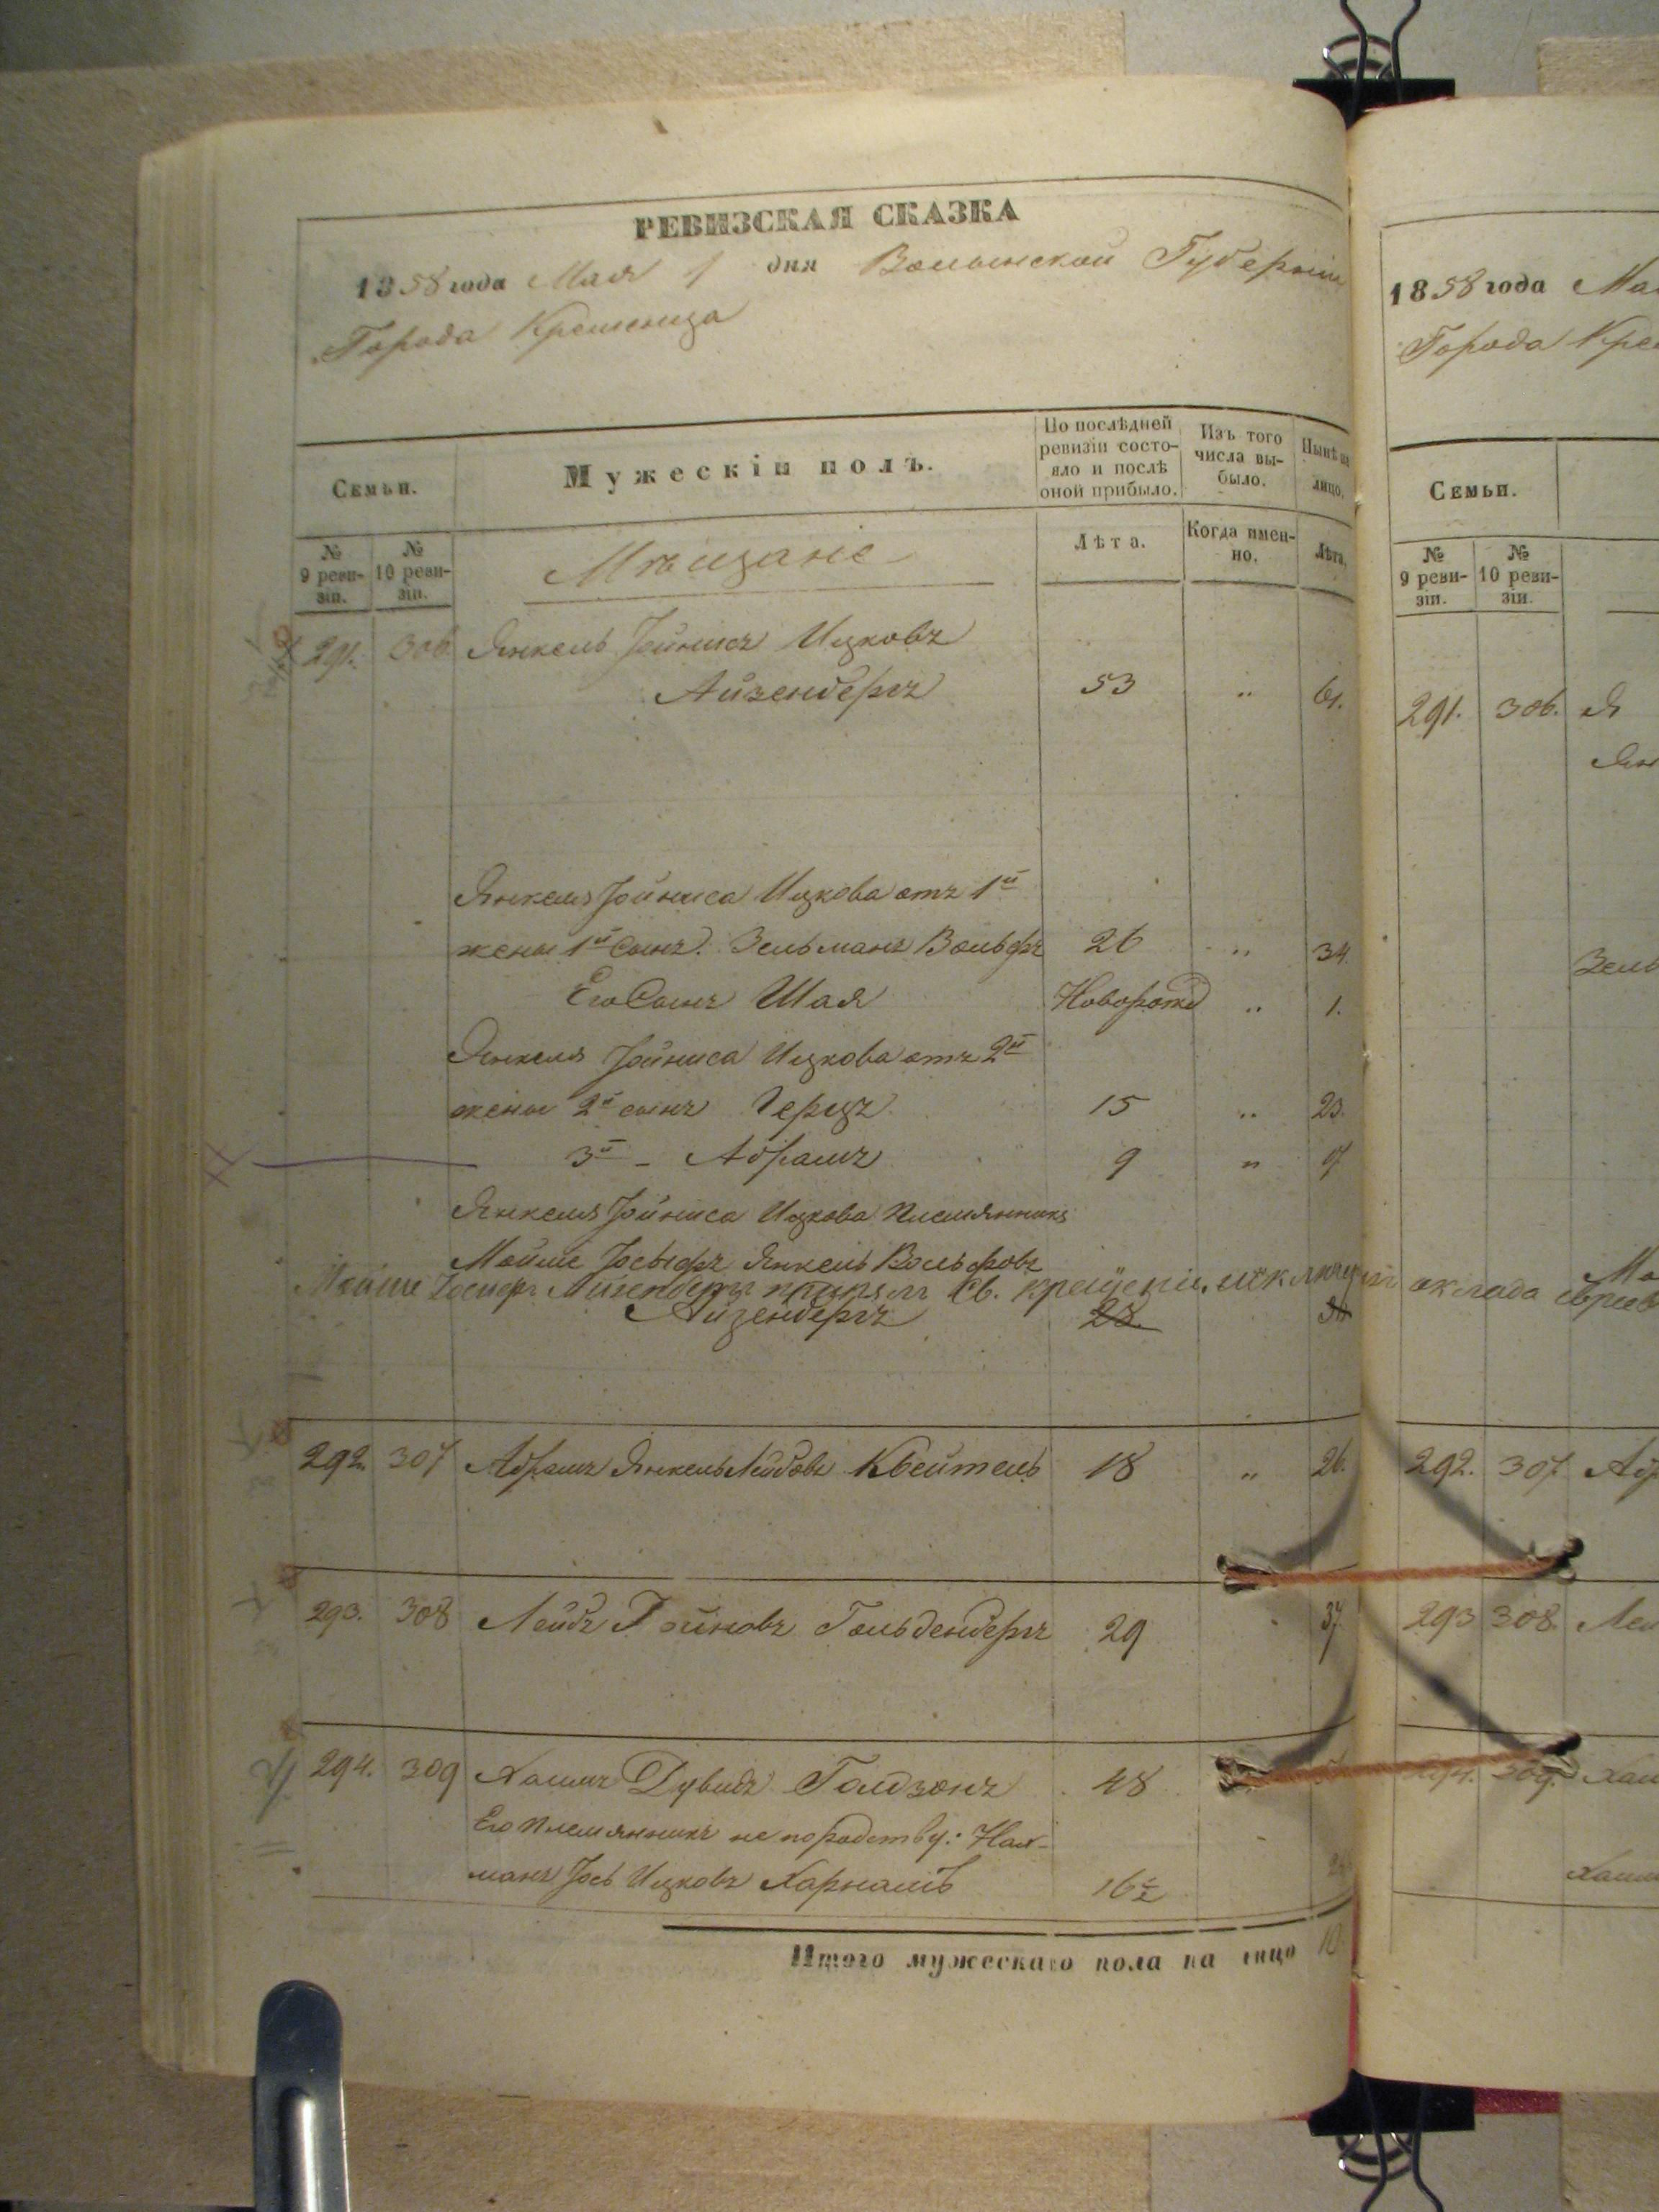 РЕВИЗСКАЯ СКАЗКА
1858 года Мая 1 дня Волынской Губерніи
Города Кременца
Семьи.
Мужескій полъ.
По послѣдней ревизіи состо-
яло и послѣ
оной прибыло.
Изъ того
числа вы-
было.
Нынѣ на
лицо.
№
9 реви-
зіи.
№
10 реви-
зіи.
Мѣщане
Лѣта.
Когда имен-
но.
Лѣта.
291. 306. Янкель Іойнисъ Ицковъ
Айзенбергъ 53 „ 61.
Янкеля Іойниса Ицкова отъ 1й
жены 1й Сынъ. Зельманъ Вольфъ 26 „ 34.
Его Сынъ ШаяНоворожд „ 1.
Янкеля Іойниса Ицкова отъ 2й
жены 2й сынъ Герцъ 15 „ 23.
3й – Абрамъ 9 „
Янкеля Іойниса Ицкова племянникъ
Мойше Іосьифъ Янкель Вольфовъ
Мойше Іосифъ Айзенбергъ принялъ Св. крещеніе, исключ. оклада евреев
Айзенбергъ 23.
292. 307 Абрамъ Янкель Лейбовъ Квейтель 18 „ 26.
293. 308 Лейбъ Гольденбергъ 29 37.
294. 309 Хаимъ Дувидъ Голдзонъ 48
Его племянникъ не по родству: Нах-
манъ Іось Ицковъ 16½
Итого мужескаго пола на лицо 10
1858 года Ма
Города Кре
Семьи.
№
9 реви-
зіи.
№
10 реви-
зіи.
291. 306. Я
Ян
Зель
292. 307. Аб
293 308. Лей
294. 309. Хаи
Хаим